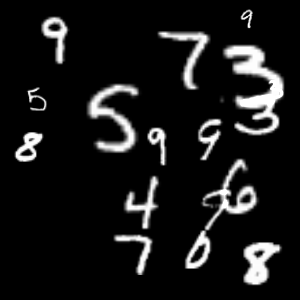 9
9 7 3
5 5 3
8 9 9
4 6
7 0 8